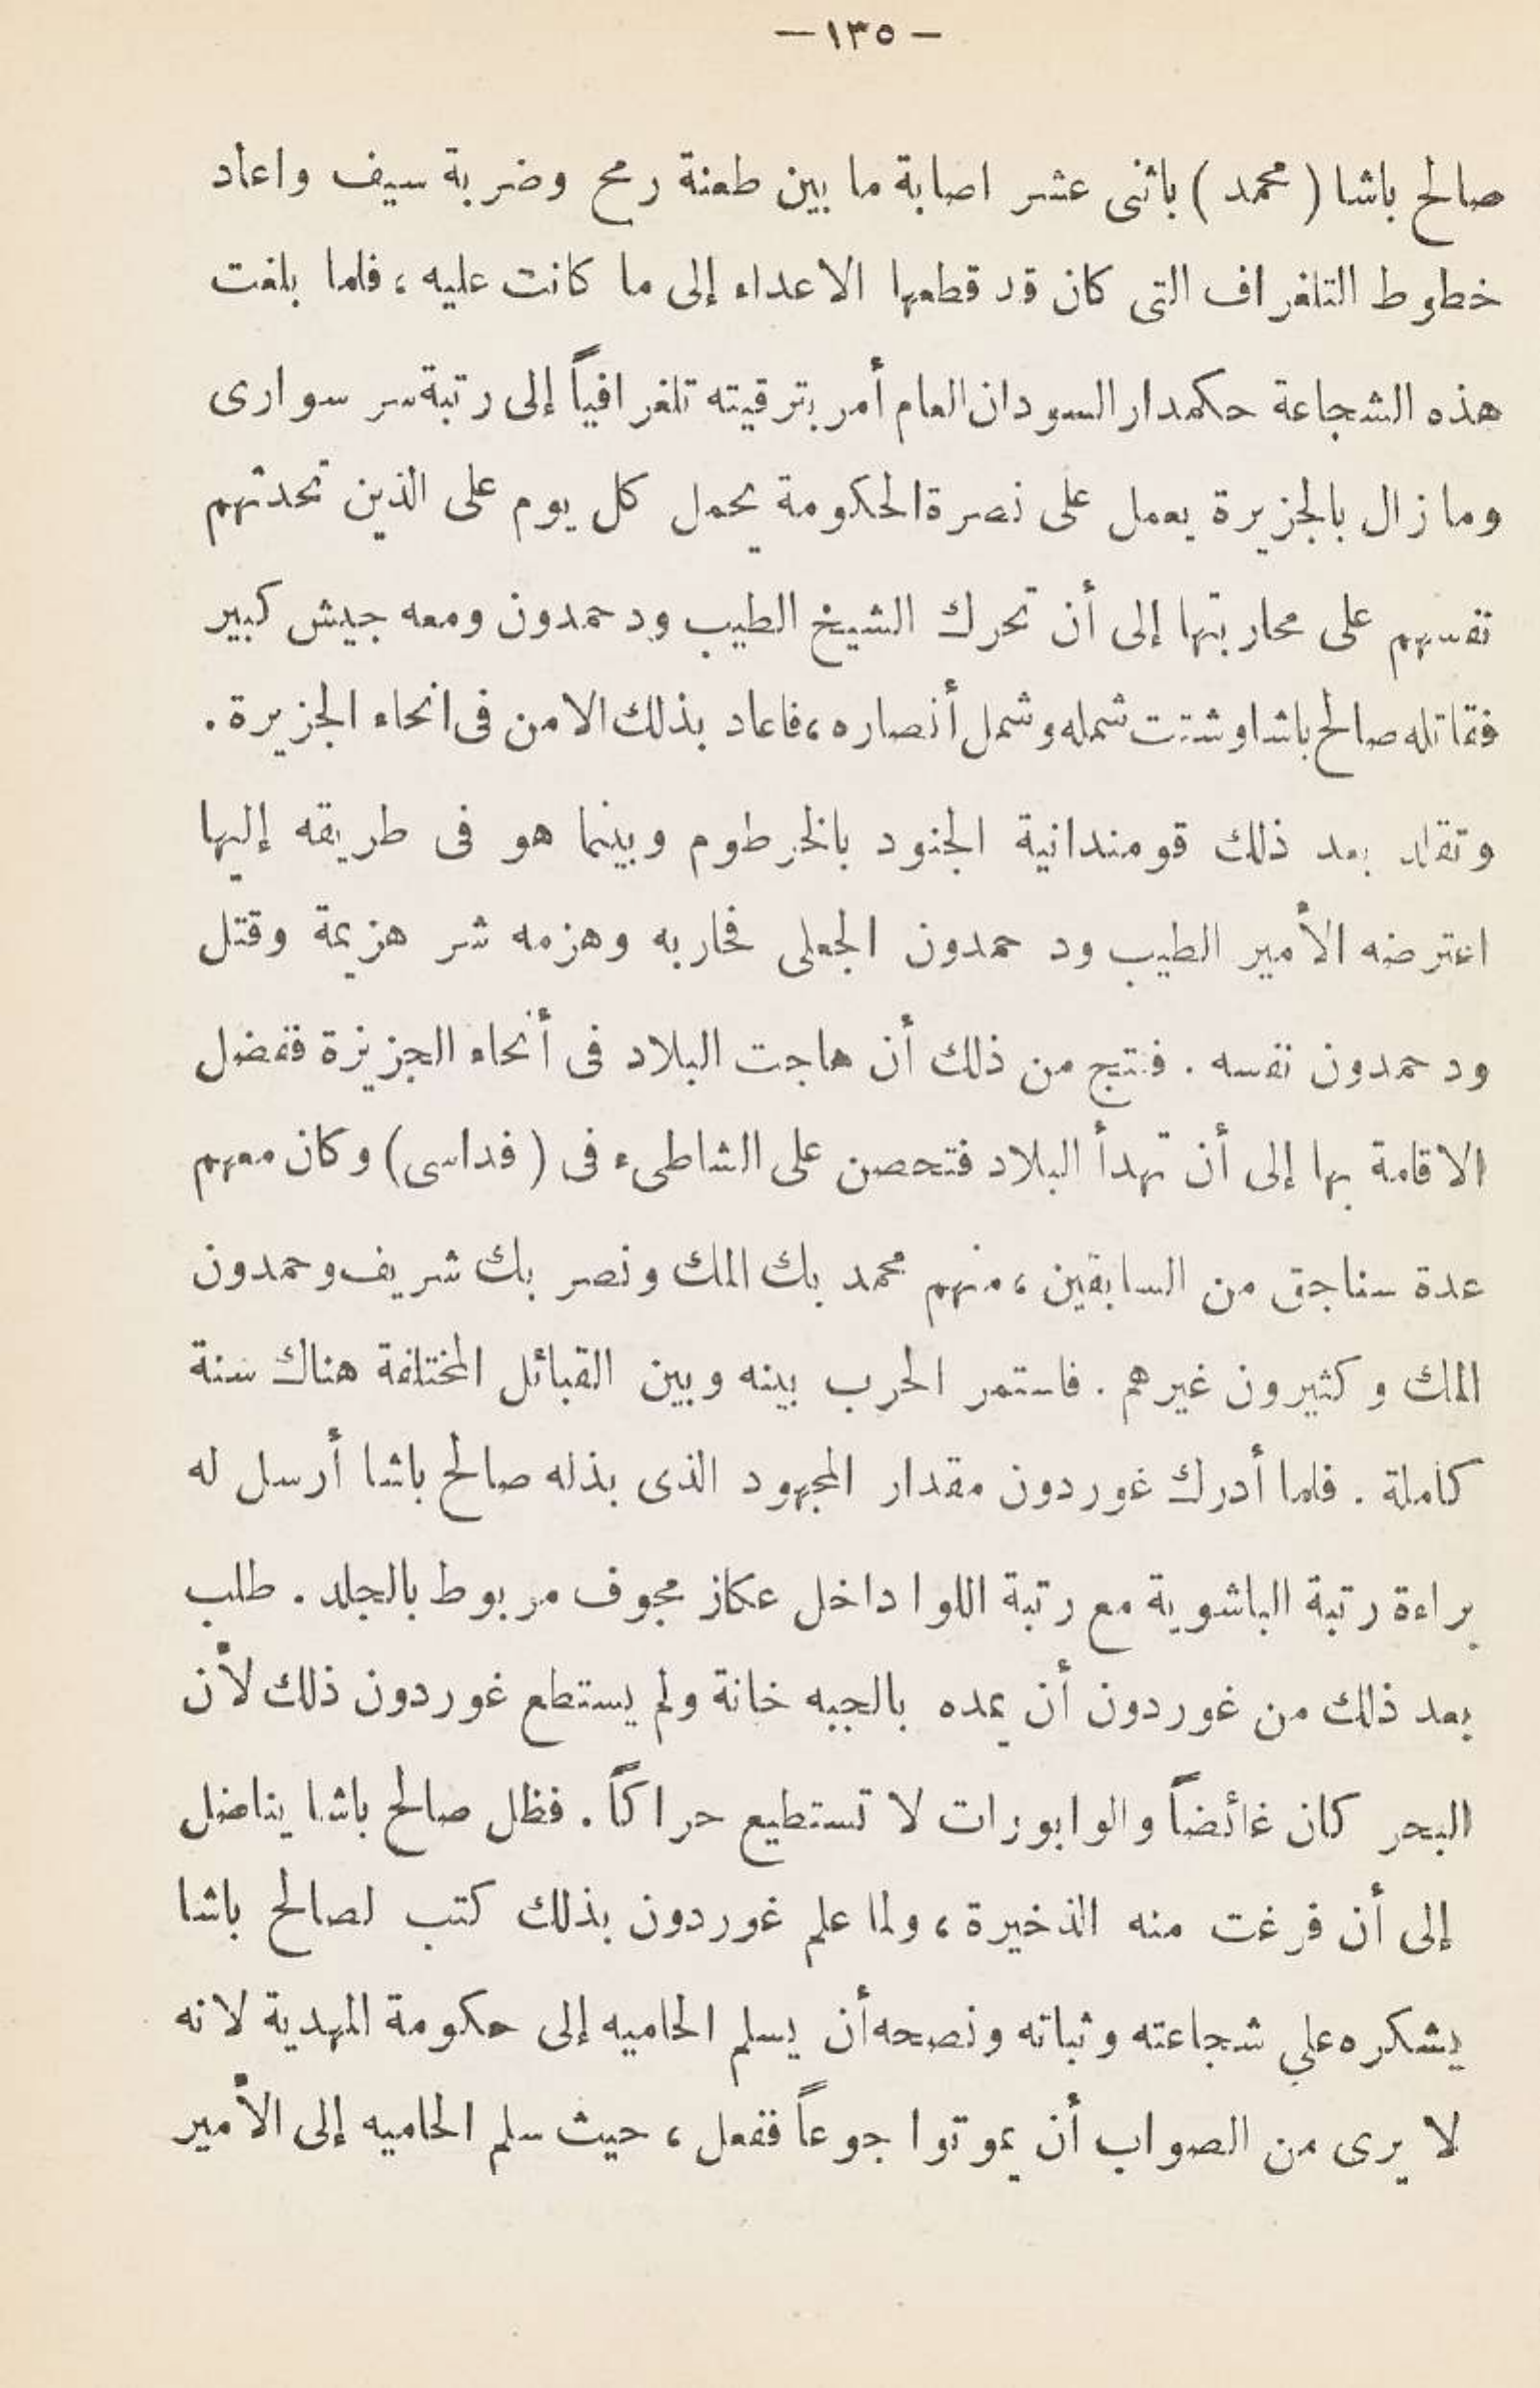 —١٣٥—
صالح باشا ( محمد ) باثنى عشر اصابة ما بين طعنة رمح وضربة سيف واعاد
خطوط التلغراف التى كان قد قطعها الاعداء إلى ما كانت عليه ، فلما بلغت
هذه الشجاعة حكمدار السودان العام أمر بترقيته تلغرافياً إلى رتبة سر سوارى
وما زال بالجزيرة يعمل على نصرة الحكومة يحمل كل يوم على الذين تحدثهم
نفسهم على محاربتها إلى أن تحرك الشيخ الطيب ود حمدون ومعه جيش كبير
فقاتله صالح باشا وشتت شمله وشمل أنصاره ، فاعاد بذلك الامن فى انحاء الجزيرة .
وتقلد بعد ذلك قومندانية الجنود بالخرطوم وبينما هو فى طريقه إليها
اعترضه الأمير الطيب ود حمدون الجعلى فحاربه وهزمه شر هزيمة وقتل
ود حمدون نفسه . فنتج من ذلك أن هاجت البلاد فى أنحاء الجزيزة ففضل
الاقامة بها إلى أن تهدأ البلاد فتحصن على الشاطىء فى ( فداسى ) وكان معهم
عدة سناجق من السابقين ، منهم محمد بك الملك ونصر بك شريف وحمدون
الملك وكثيرون غيرهم . فاستمر الحرب بينه وبين القبائل المختلفة هناك سنة
كاملة . فلما أدرك غوردون مقدار المجهود الذى بذله صالح باشا أرسل له
براءة رتبة الباشوية مع رتبة اللوا داخل عكاز مجوف مربوط بالجلد . طلب
بعد ذلك من غوردون أن يمده بالجبه خانة ولم يستطع غوردون ذلك لأن
البحر كان غائضاً والوابورات لا تستطيع حراكاً . فظل صالح باشا يناضل
إلى أن فرغت منه الذخيرة ، ولما علم غوردون بذلك كتب لصالح باشا
يشكره علي شجاعته وثباته ونصحه أن يسلم الحاميه إلى حكومة المهدية لانه
لا يرى من الصواب أن يموتوا جوعاً ففعل ، حيث سلم الحاميه إلى الأمير